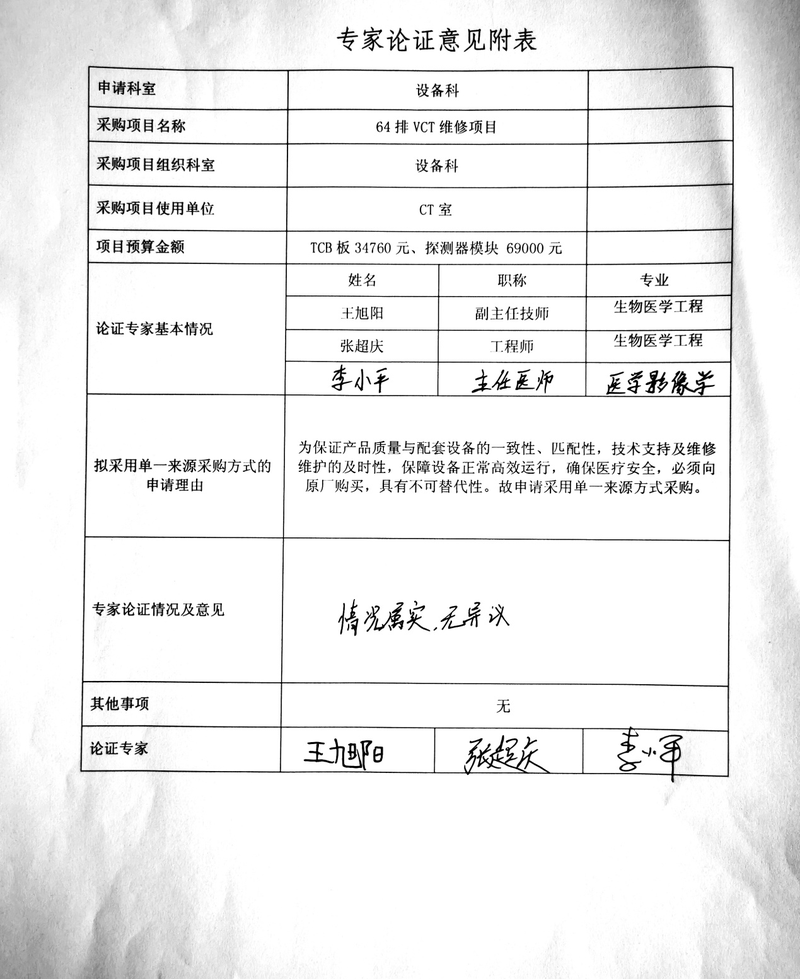 专家论证意见附表
申请科室 设备科
采购项目名称 64排VCT维修项目
采购项目组织科室 设备科
采购项目使用单位 CT室
项目预算金额 TCB板34760元、探测器模块 69000元
论证专家基本情况
姓名 职称 专业
王旭阳 副主任技师 生物医学工程
张超庆 工程师 生物医学工程
李小平 主任医师 医学影像学
拟采用单一来源采购方式的
申请理由
为保证产品质量与配套设备的一致性、匹配性，技术支持及维修
维护的及时性，保障设备正常高效运行，确保医疗安全，必须向
原厂购买，具有不可替代性。故申请采用单一来源方式采购。
专家论证情况及意见 情况属实，无异议
其他事项 无
论证专家 王旭阳 张超庆 李小平